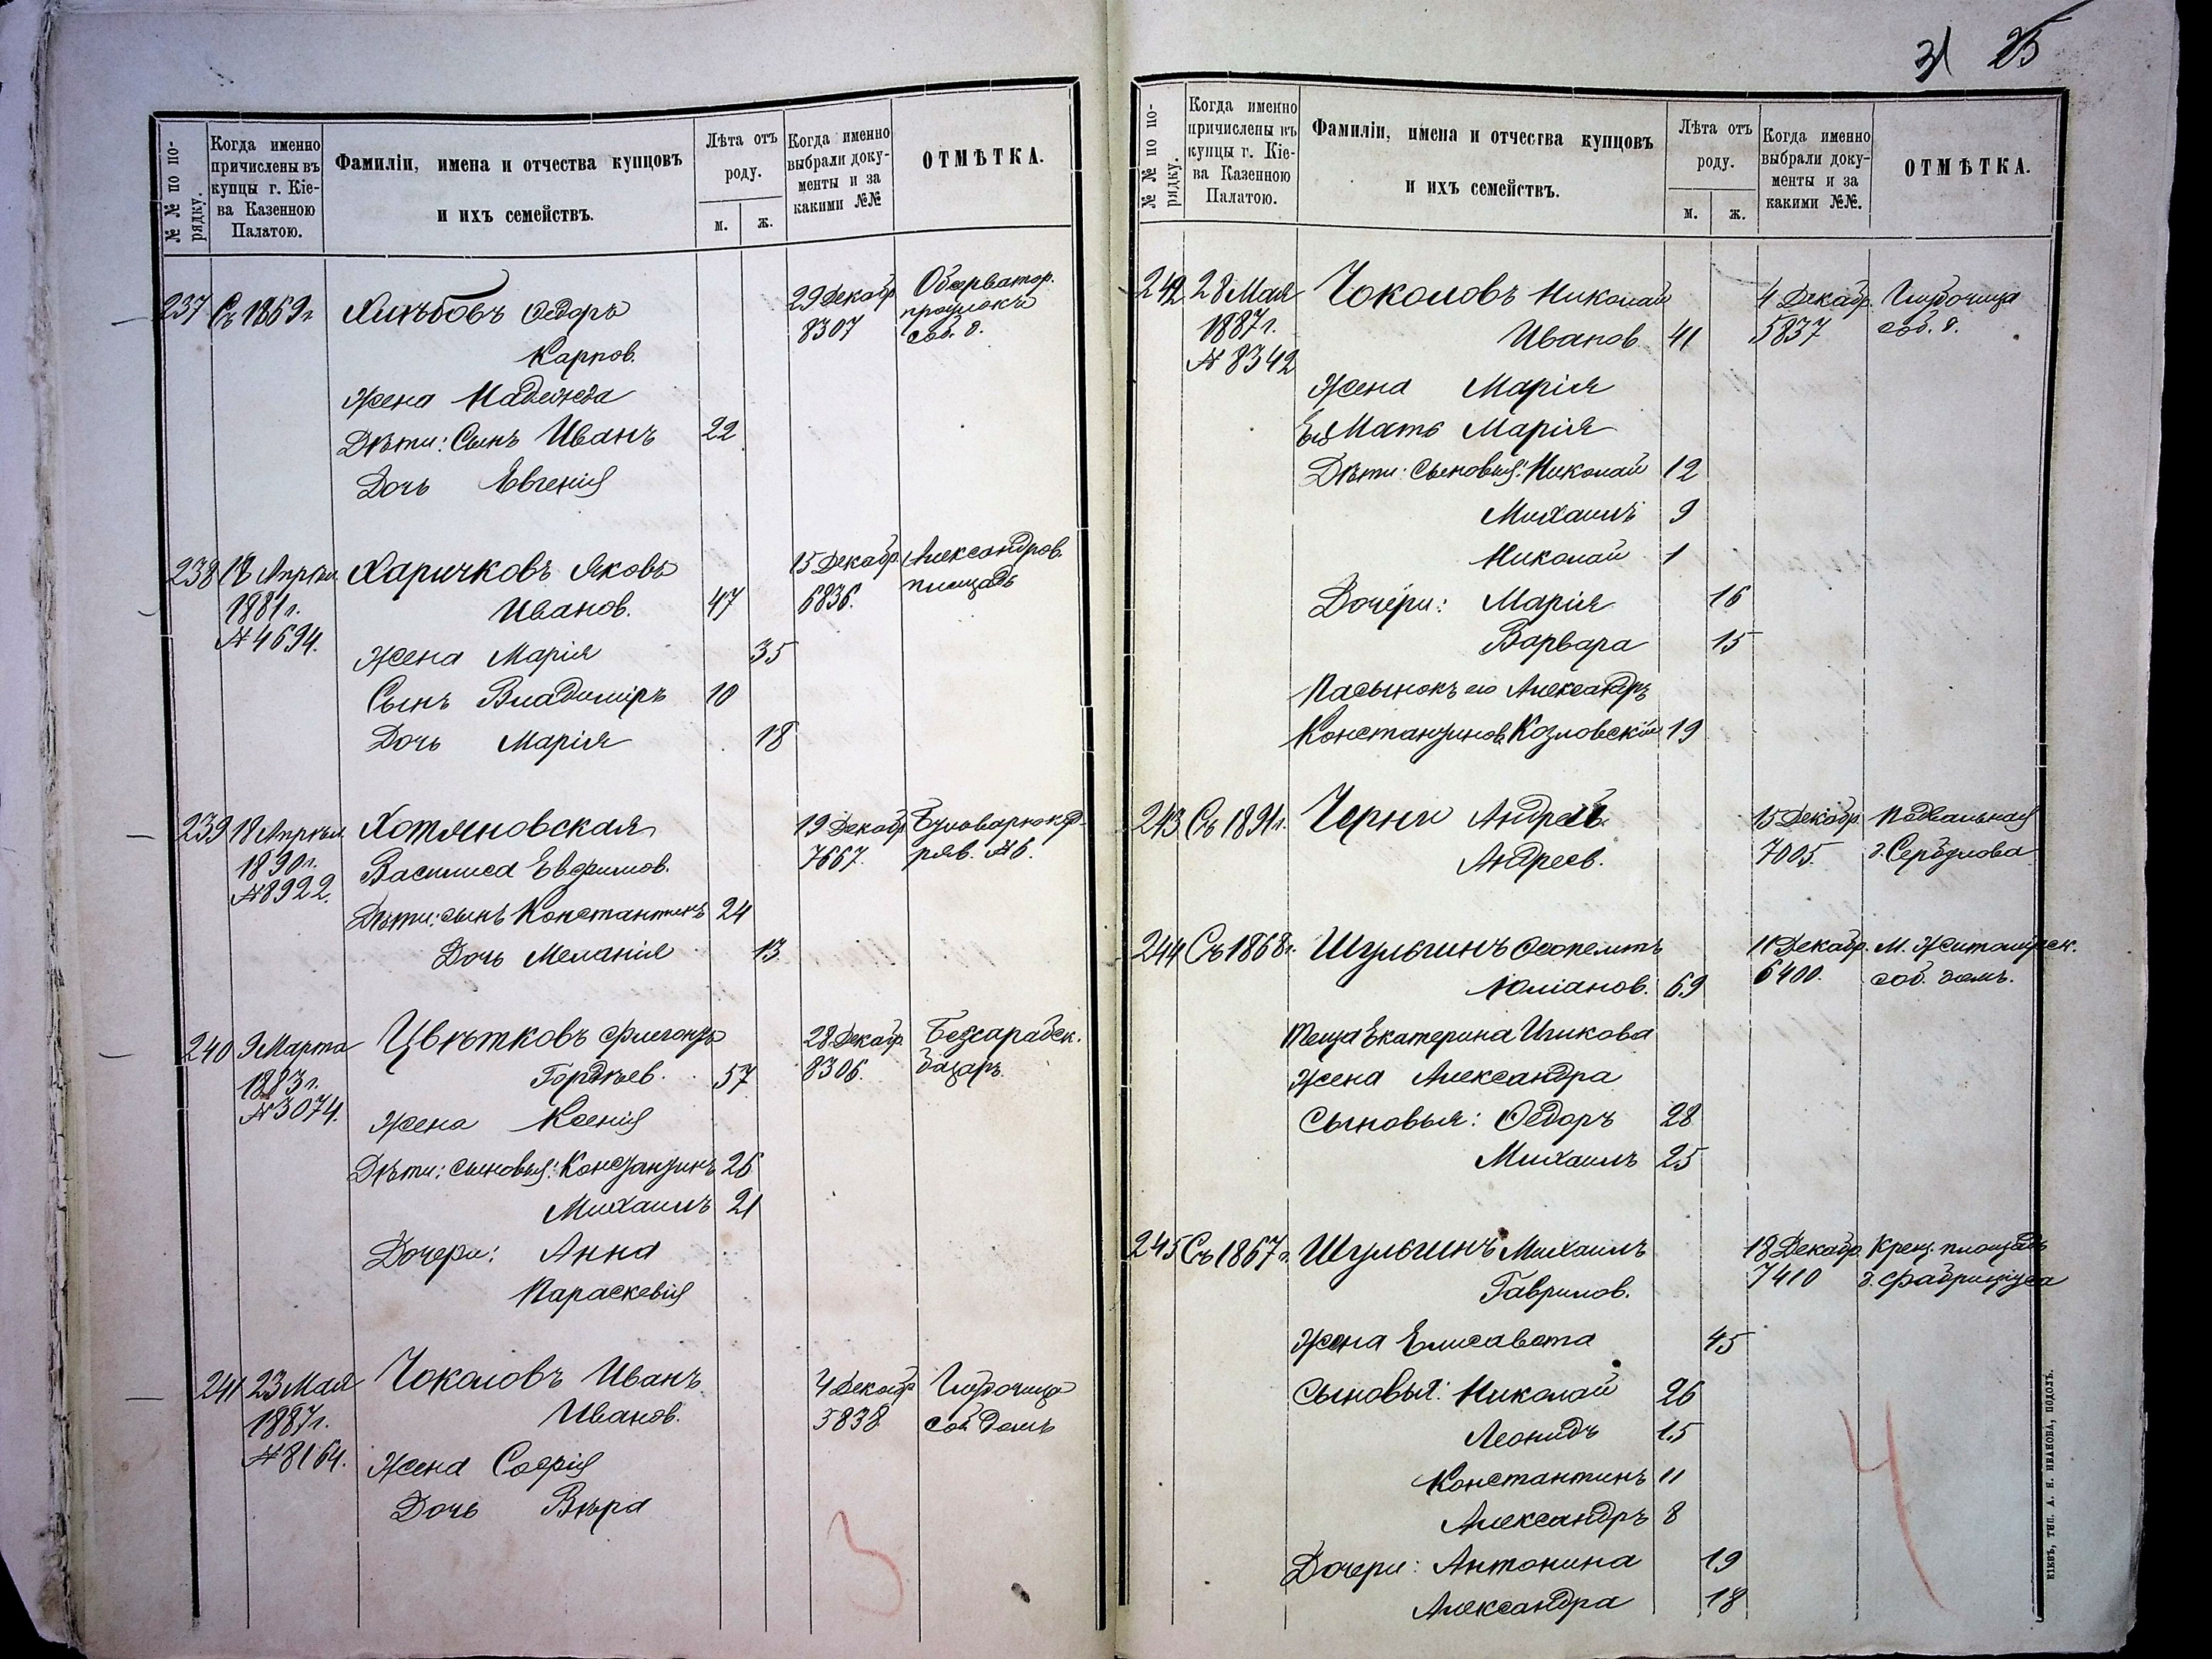 31 25
№ № по по-
рядку.
Когда именно
причислены въ
купцы г. Кіе-
ва Казенною
Палатою.
Фамиліи, имена и отчества купцовъ
и ихъ семействъ.
Лѣта отъ
роду.
м. ж.
Когда именно
выбрали доку-
менты и за
какими №№
ОТМѢТКА.
237 Съ 1869 г. Хлѣбовъ Ѳедоръ 29 Декабр. Обсерватор.
Карпов. 8307 проулокъ
соб. д.
Жена Надежда
Дѣти: Сынъ Иванъ 22
Дочь Евгенія
238 18 Апрѣля Харичковъ Яковъ 15 Декабр. Александров.
1881 г. Иванов. 47 6836. площадь
№ 4694.
Жена Марія 35
Сынъ Владиміръ 10
Дочь Марія 18
239 18 Апрѣля Хотяновская 19 Декабр. Бульварнокуд-
1890 г. Василиса Евфимов. 7667. ряв. № 6.
№ 8922.
Дѣти: сынъ Константинъ 24
Дочь Меланія 13
240 9 Марта Цвѣтковъ Флегонтъ 28 Декабр. Бессарабск.
1883 г. Гордѣев. 57 8306. базаръ
№ 3074.
Жена Ксенія
Дѣти: сыновья: Константинъ 26
Михаилъ 21
Дочери: Анна
Параскевія
241 23 Мая Чоколовъ Иванъ 4 Декабр. Глубочица
1887 г. Иванов. 5838 соб. домъ
№ 8164.
Жена Софія
Дочь Вѣра
3
№ № по по-
рядку.
Когда именно
причислены въ
купцы г. Кіе-
ва Казенною
Палатою.
Фамиліи, имена и отчества купцовъ
и ихъ семействъ.
Лѣта отъ
роду.
м. ж.
Когда именно
выбрали доку-
менты и за
какими №№.
ОТМѢТКА.
242 28 Мая Чоколовъ Николай 4 Декабр. Глубочица
1887 г. Иванов. 41 5837 соб. д.
№ 8342
Жена Марія
Ея Мать Марія
Дѣти: сыновья: Николай 12
Михаилъ 9
Николай 1
Дочери: Марія 16
Варвара 15
Пасынокъ его Александръ
Константинов. Козловскій 19
243 Съ 1891 г. Черни Андрей 15 Декабр. Подвальная
Андреев. 7005. д. Сербулова
244 Съ 1868 г. Шульгинъ Ѳеопемптъ 11 Декабр. М. Житомірск.
Юліанов. 69 6400. соб. домъ.
Теща Екатерина Ичикова
Жена Александра
Сыновья: Ѳедоръ 28
Михаилъ 25
245 Съ 1867 г. Шульгинъ Михаилъ 18 Декабр. Крещ. площадь
Гаврилов. 7410 д. Фабриціуса
Жена Елисавета 45
Сыновья: Николай 26
Леонидъ 15
Константинъ 11
Александръ 8
Дочери: Антонина 19
Александра 18
4
КІЕВЪ, ТИП. А. Н. ИВАНОВА, ПОДОЛЪ.